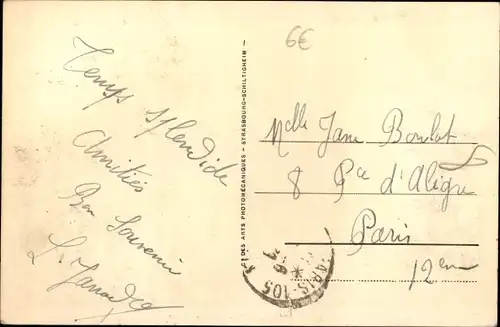 6€
Temps splendide
Amitiés
Bon Souvenir
Cie DES ARTS PHOTOMÉCANIQUES - STRASBOURG-SCHILTIGHEIM -
Mdlle Jane Boulat
8 Pce d'Aligre
Paris
12em
PARIS-105